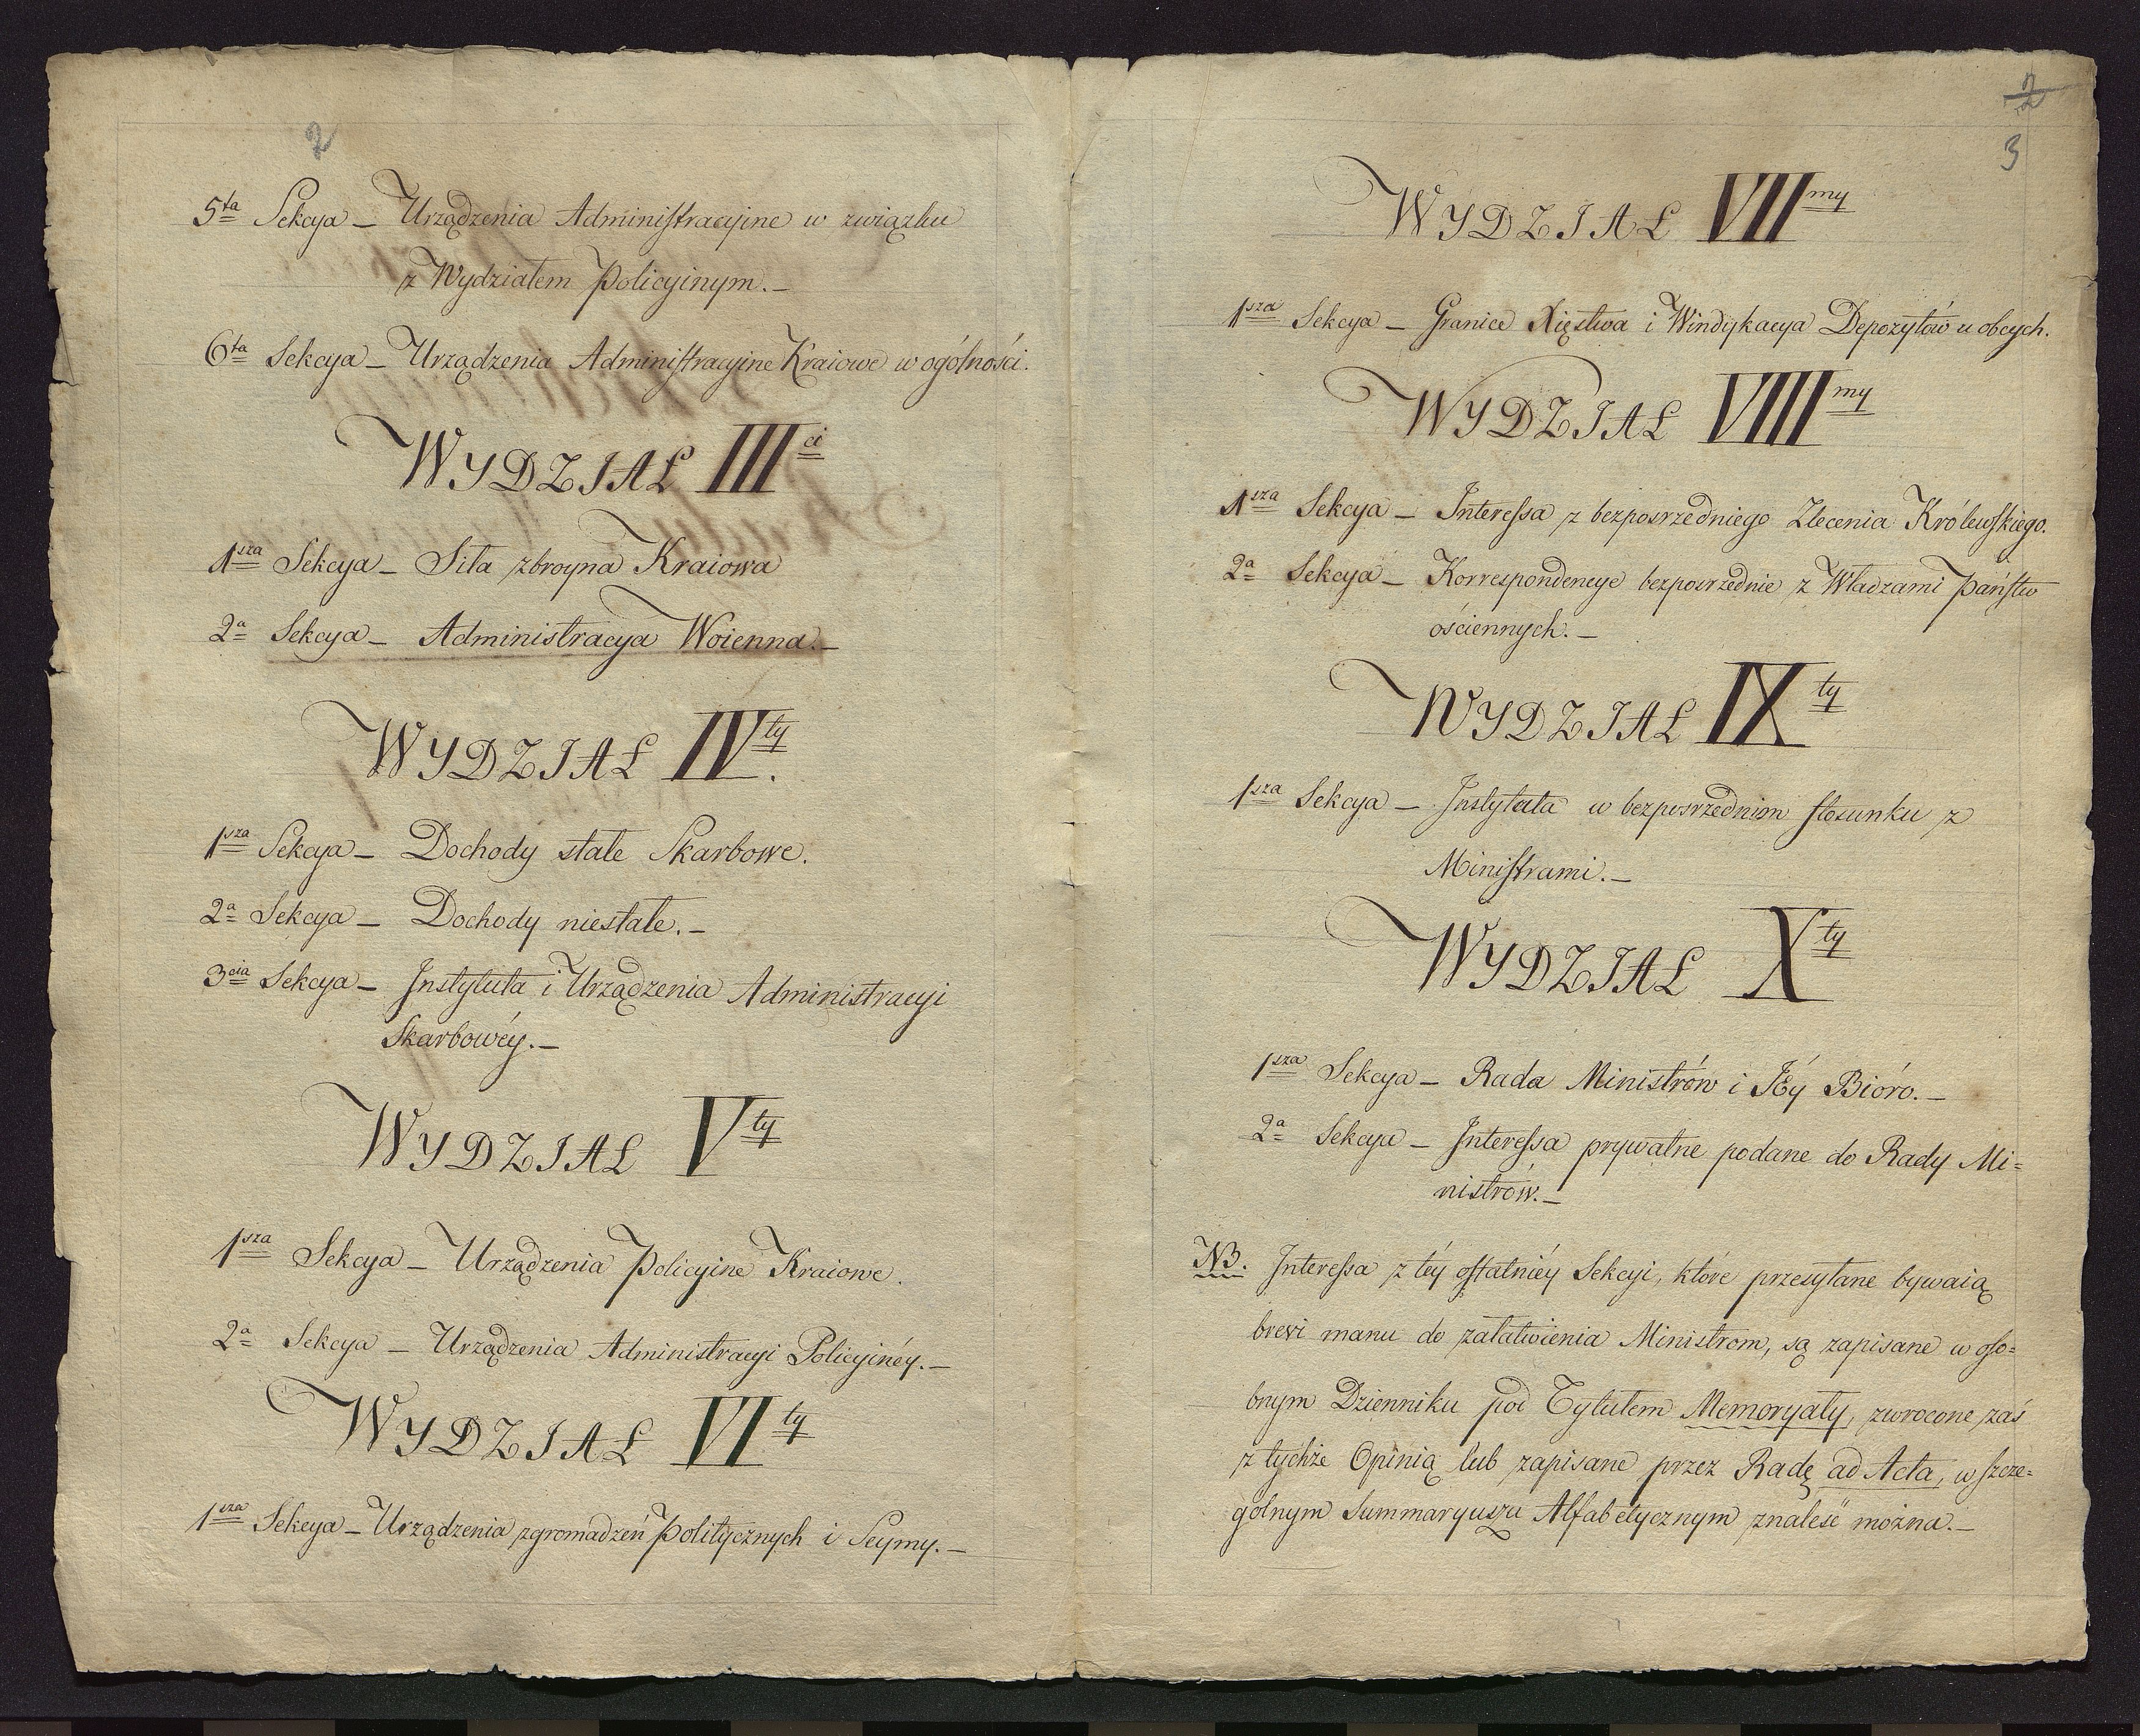 2
5ta Sekcya – Urządzenia Administracyine w związku
z Wydziałem Policyinym. –
6ta Sekcya – Urządzenia Administracyine Kraiowe w ogólności.
WYDZIAŁ IIIci
1sza Sekcya – Siła zbroyna Kraiowa
2a Sekcya – Administracya Woienna. –
WYDZIAŁ IVty.
1sza Sekcya – Dochody stałe Skarbowe.
2a Sekcya – Dochody niestałe. –
3cia Sekcya – Instytuta i Urządzenia Administracyi
Skarbowéy. –
WYDZIAŁ Vty
1sza Sekcya – Urządzenia Policyine Kraiowe.
2a Sekcya – Urządzenia Administracyi Policyinéy. –
WYDZIAŁ VIty
1sza Sekcya – Urządzenia zgromadzeń Politycznych i Seymy. –
2
3
WYDZIAŁ VIImy
1sza Sekcya – Granice Xięstwa i Windykacya Depozytów u obcych.
WYDZIAŁ VIIImy
1sza Sekcya – Interessa z bezposrzedniego Zlecenia Królewskiego.
2a Sekcya – Korrespondencye bezposrzednie z Władzami Państw
ościennych. –
WYDZIAŁ IXty
1sza Sekcya – Instytuta w bezposrzednim stosunku z
Ministrami. –
WYDZIAŁ Xty
1sza Sekcya – Rada Ministrów i Jéy Bióro. –
2a Sekcya – Interessa prywatne podane do Rady Mi=
nistrów. –
NB. Interessa z téy ostatniéy Sekcyi, które przesyłane bywaią
brevi manu do załatwienia Ministrom, są zapisane w oso=
bnym Dzienniku pod Tytułem Memoryały, zwrocone zaś
z tychże Opinią lub zapisane przez Radę ad Acta, w szcze=
gólnym Summaryuszu Alfabetycznym znaleść można. –